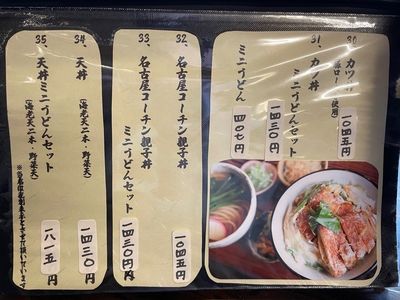 30、カツ丼
(豚ロース使用)
一〇四五円
31、カツ丼
ミニうどんセット
一四三〇円
ミニうどん
四〇七円
32、名古屋コーチン親子丼
一〇四五円
33、名古屋コーチン親子丼
ミニうどんセット
一四三〇円
34、天丼
(海老天二本・野菜天)
一四三〇円
35、天丼
ミニうどんセット
(海老天二本・野菜天)
一八一五円